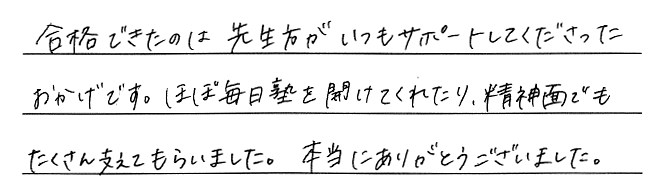 合格できたのは 先生方がいつもサポートしてくださった
おかげです。ほぼ毎日塾を開けてくれたり、精神面でも
たくさん支えてもらいました。 本当にありがとうございました。